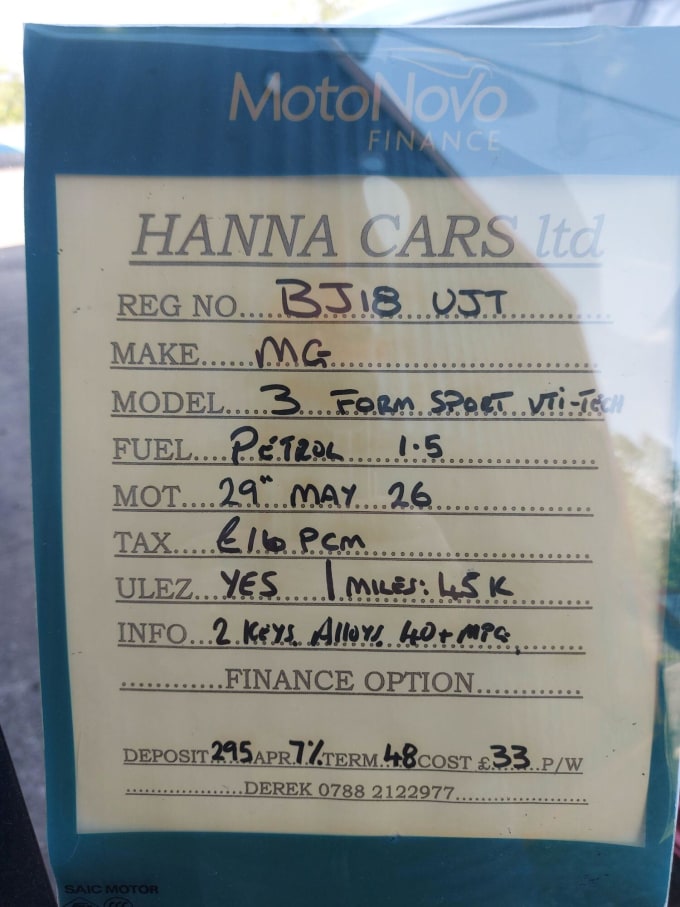 MotoNovo
FINANCE
HANNA CARS ltd
REG NO....BJ18 UJT
MAKE.....MG
MODEL....3 FORM SPORT VTi-TECH
FUEL...PETROL 1.5
MOT...29th MAY 26
TAX....£16 PCM
ULEZ YES | MILES: 45K
INFO...2 KEYS, ALLOYS, 40+ MPG,
...........FINANCE OPTION............
DEPOSIT 295 APR 7% TERM 48 COST £33 P/W
..................DEREK 0788 2122977....................
SAIC MOTOR